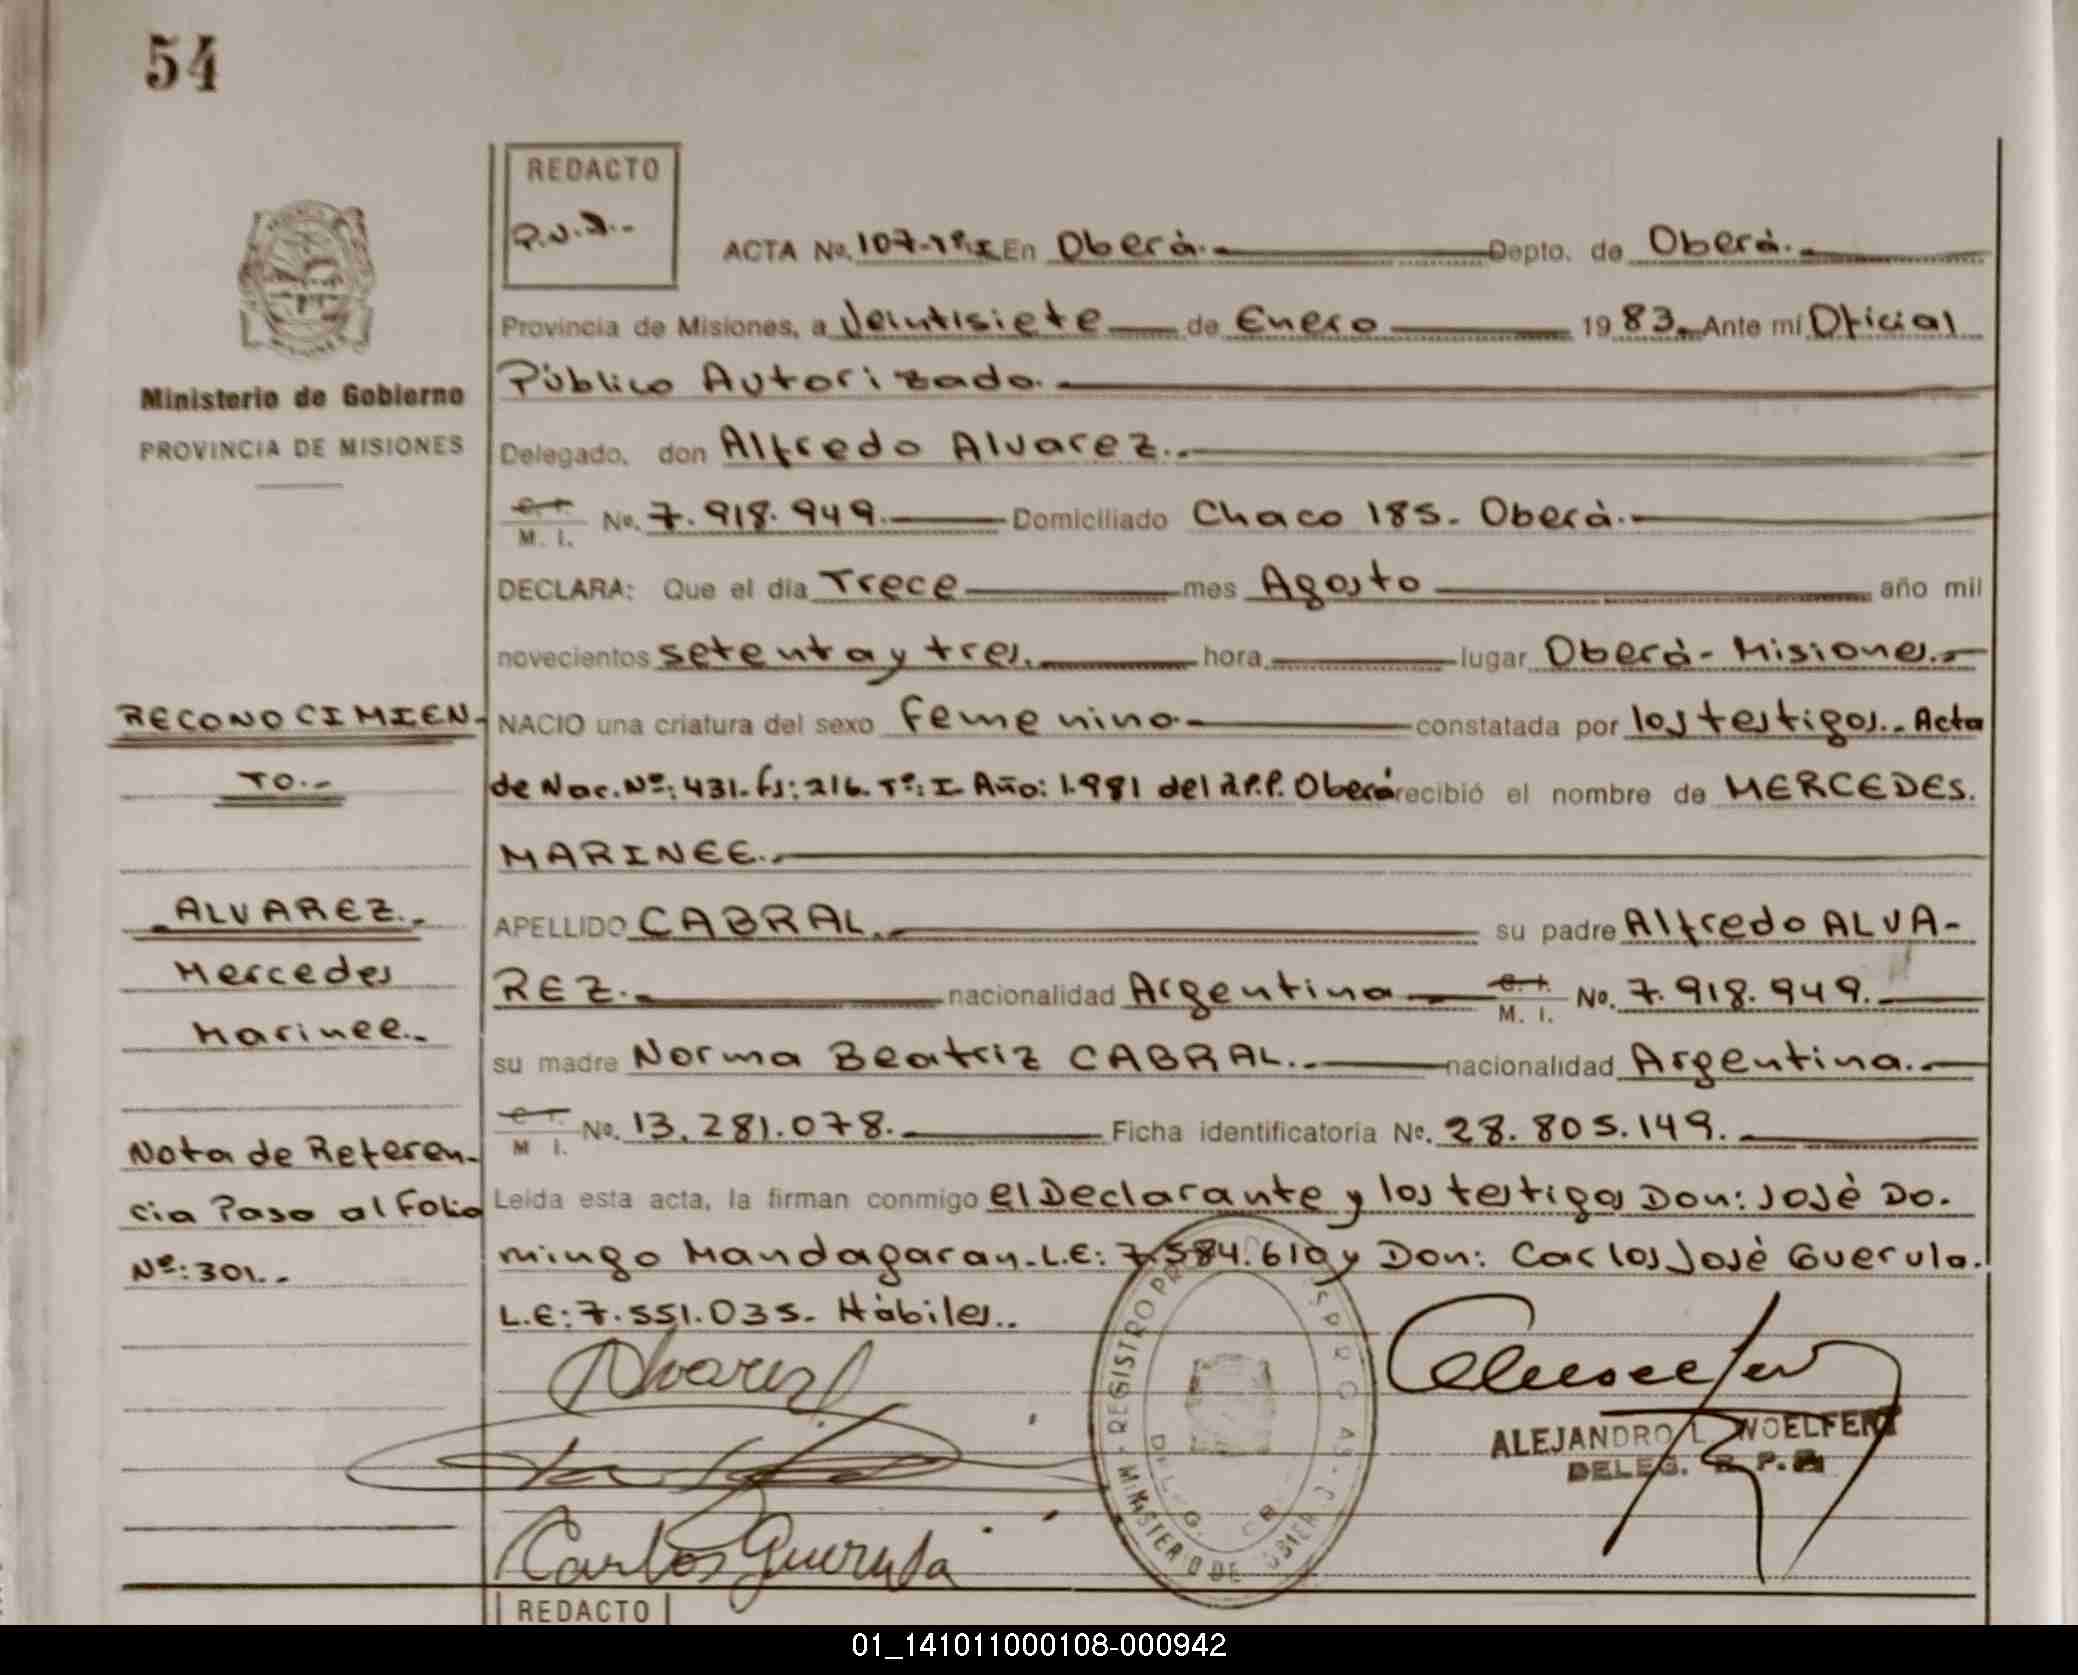 54
REDACTO
ACTA No. 107-Tº.I En Oberà. Depto. de Oberà.
Provincia de Misiones, a Veintisiete de Enero 1983. Ante mí Oficial
Pùblico Autorizado.
Ministerio de Gobierno
PROVINCIA DE MISIONES
Delegado, don Alfredo Alvarez.
M. I. No. 7.918.949. Domiciliado Chaco 185. Oberà.
DECLARA: Que el día Trece mes Agosto año mil
novecientos setenta y tres. hora lugar Oberà - Misiones.
RECONOCIMIEN-
TO.-
NACIO una criatura del sexo femenino constatada por los testigos. Acta
de Nac. Nº: 431. fs: 216. Tº: I. Año: 1.981 del R.P.P. Oberà recibió el nombre de MERCEDES.
MARINEE.
ALVAREZ.-
Mercedes
Marinee.-
APELLIDO CABRAL. su padre Alfredo ALVA-
REZ. nacionalidad Argentina M. I. No. 7.918.949.
su madre Norma Beatriz CABRAL. nacionalidad Argentina.
M I. No. 13.281.078. Ficha identificatoria No. 28.805.149.
Nota de Referen-
cia Paso al Folio
Nº: 301.-
Leída esta acta, la firman conmigo el Declarante y los testigos Don: Josè Do-
mingo Mandagaran. L.E: 7.584.610 y Don: Carlos Josè Guerula.
L.E: 7.551.035. Hàbiles.
Alvarez
Carlos Guerula
REGISTRO
MINISTERIO DE GOBIER
ALEJANDRO L. WOELFERT
DELEG. R. P. P.
REDACTO
01_141011000108-000942